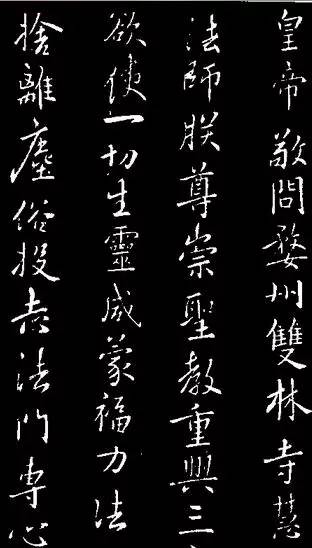 皇帝敬問婺州雙林寺慧
法師朕尊崇聖教重興三
欲使一切生靈咸蒙福力法
捨離塵俗投志法門專心